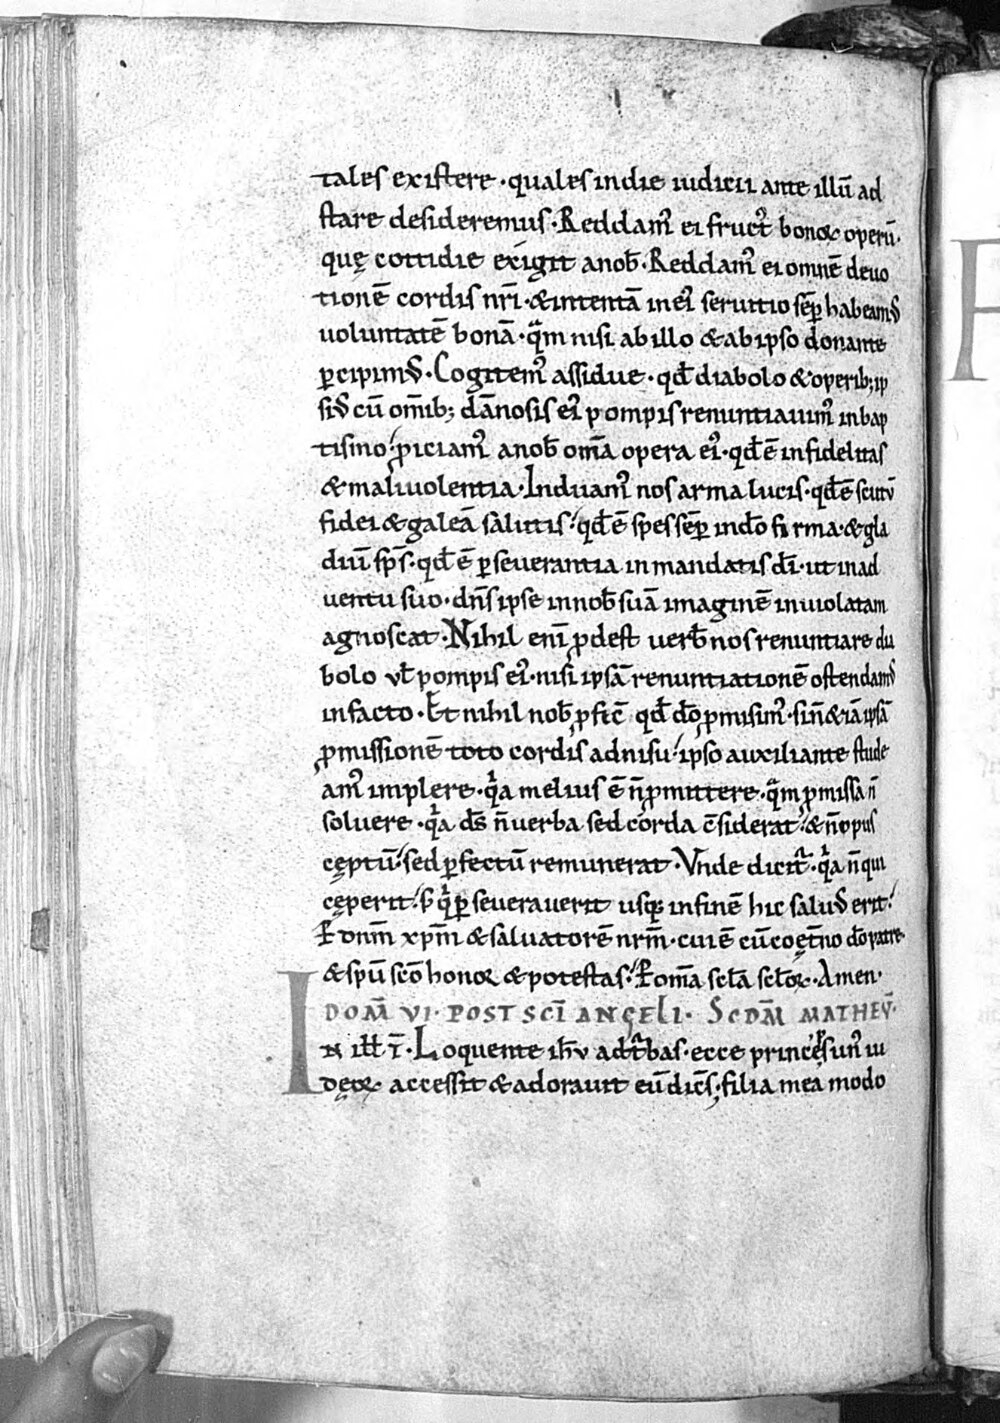 tales existere · quales in die iudicii ante illū ad
stare desideremus · Reddam᷒ ei fruct᷒ bonoꝝ operū·
quę cottidie exigit a nob̄ · Reddam᷒ ei omnē deuo
tionē cordis nr̄i · & intentā in ei᷒ seruitio sēp̄ habeam᷒
uoluntatē bonā · qͣm nisi ab illo & ab ipso donante
ꝑcipim᷒ · Cogitem᷒ assidue · qd̄ diabolo & operib; ip
si᷒ cū om̄ib; dānosis ei᷒ pompis renuntiauim᷒ in bap
tismo · ꝓiciam᷒ a nob̄ om̄a opera ei᷒ · qd̄ ē infidelitas
& maliuolentia · Induam᷒ nos arma lucis · qd̄ ē scutū
fidei & galeā salutis · qd̄ ē spes sēp̄ in dō firma · & gla
diū sp̄s · qd̄ ē ꝑseuerantia in mandatis dī · ut in ad
uentu suo · dn̄s ipse in nob̄ suā imaginē inuiolatam
agnoscat · Nihil enī ꝓdest uerb̄ nos renuntiare dia
bolo ul̄ pompis ei᷒ · nisi ipsā renuntiationē ostendam᷒
in facto · Et nihil nob̄ ꝓfic̄ qd̄ dō ꝓmisim᷒ · si n̄ & iā ipsā
ꝓmissionē toto cordis adnisu · ipso auxiliante stude
am᷒ implere · qͥa melius ē n̄ ꝓmittere · qͣm ꝓmissa n̄
soluere · qͥa dš n̄ uerba sed corda c̄siderat · & n̄ opus
cęptū · sed ꝑfectū remunerat · Vnde dicit᷑ · qͥa n̄ qui
cęperit · s̄ qͥ ꝑseuerauerit usq; in finē hic salu᷒ erit ·
P dnm̄ xpm̄ & saluatorē nrm̄ · cui ē cū coęt̄no dō patre
& sp̄u sc̄o honor & potestas · P om̄a sc̄la sc̄loꝝ · Amen ·
DOM̄ VI · POST SCI ANGELI · SCDM̄ MATHEV̄ ·
IN ill̄ t̄ · Loquente ih̄u ad tͥbas · ecce princęps un᷒ iu
dęoꝝ accessit & adorauit eū dic̄s · filia mea modo